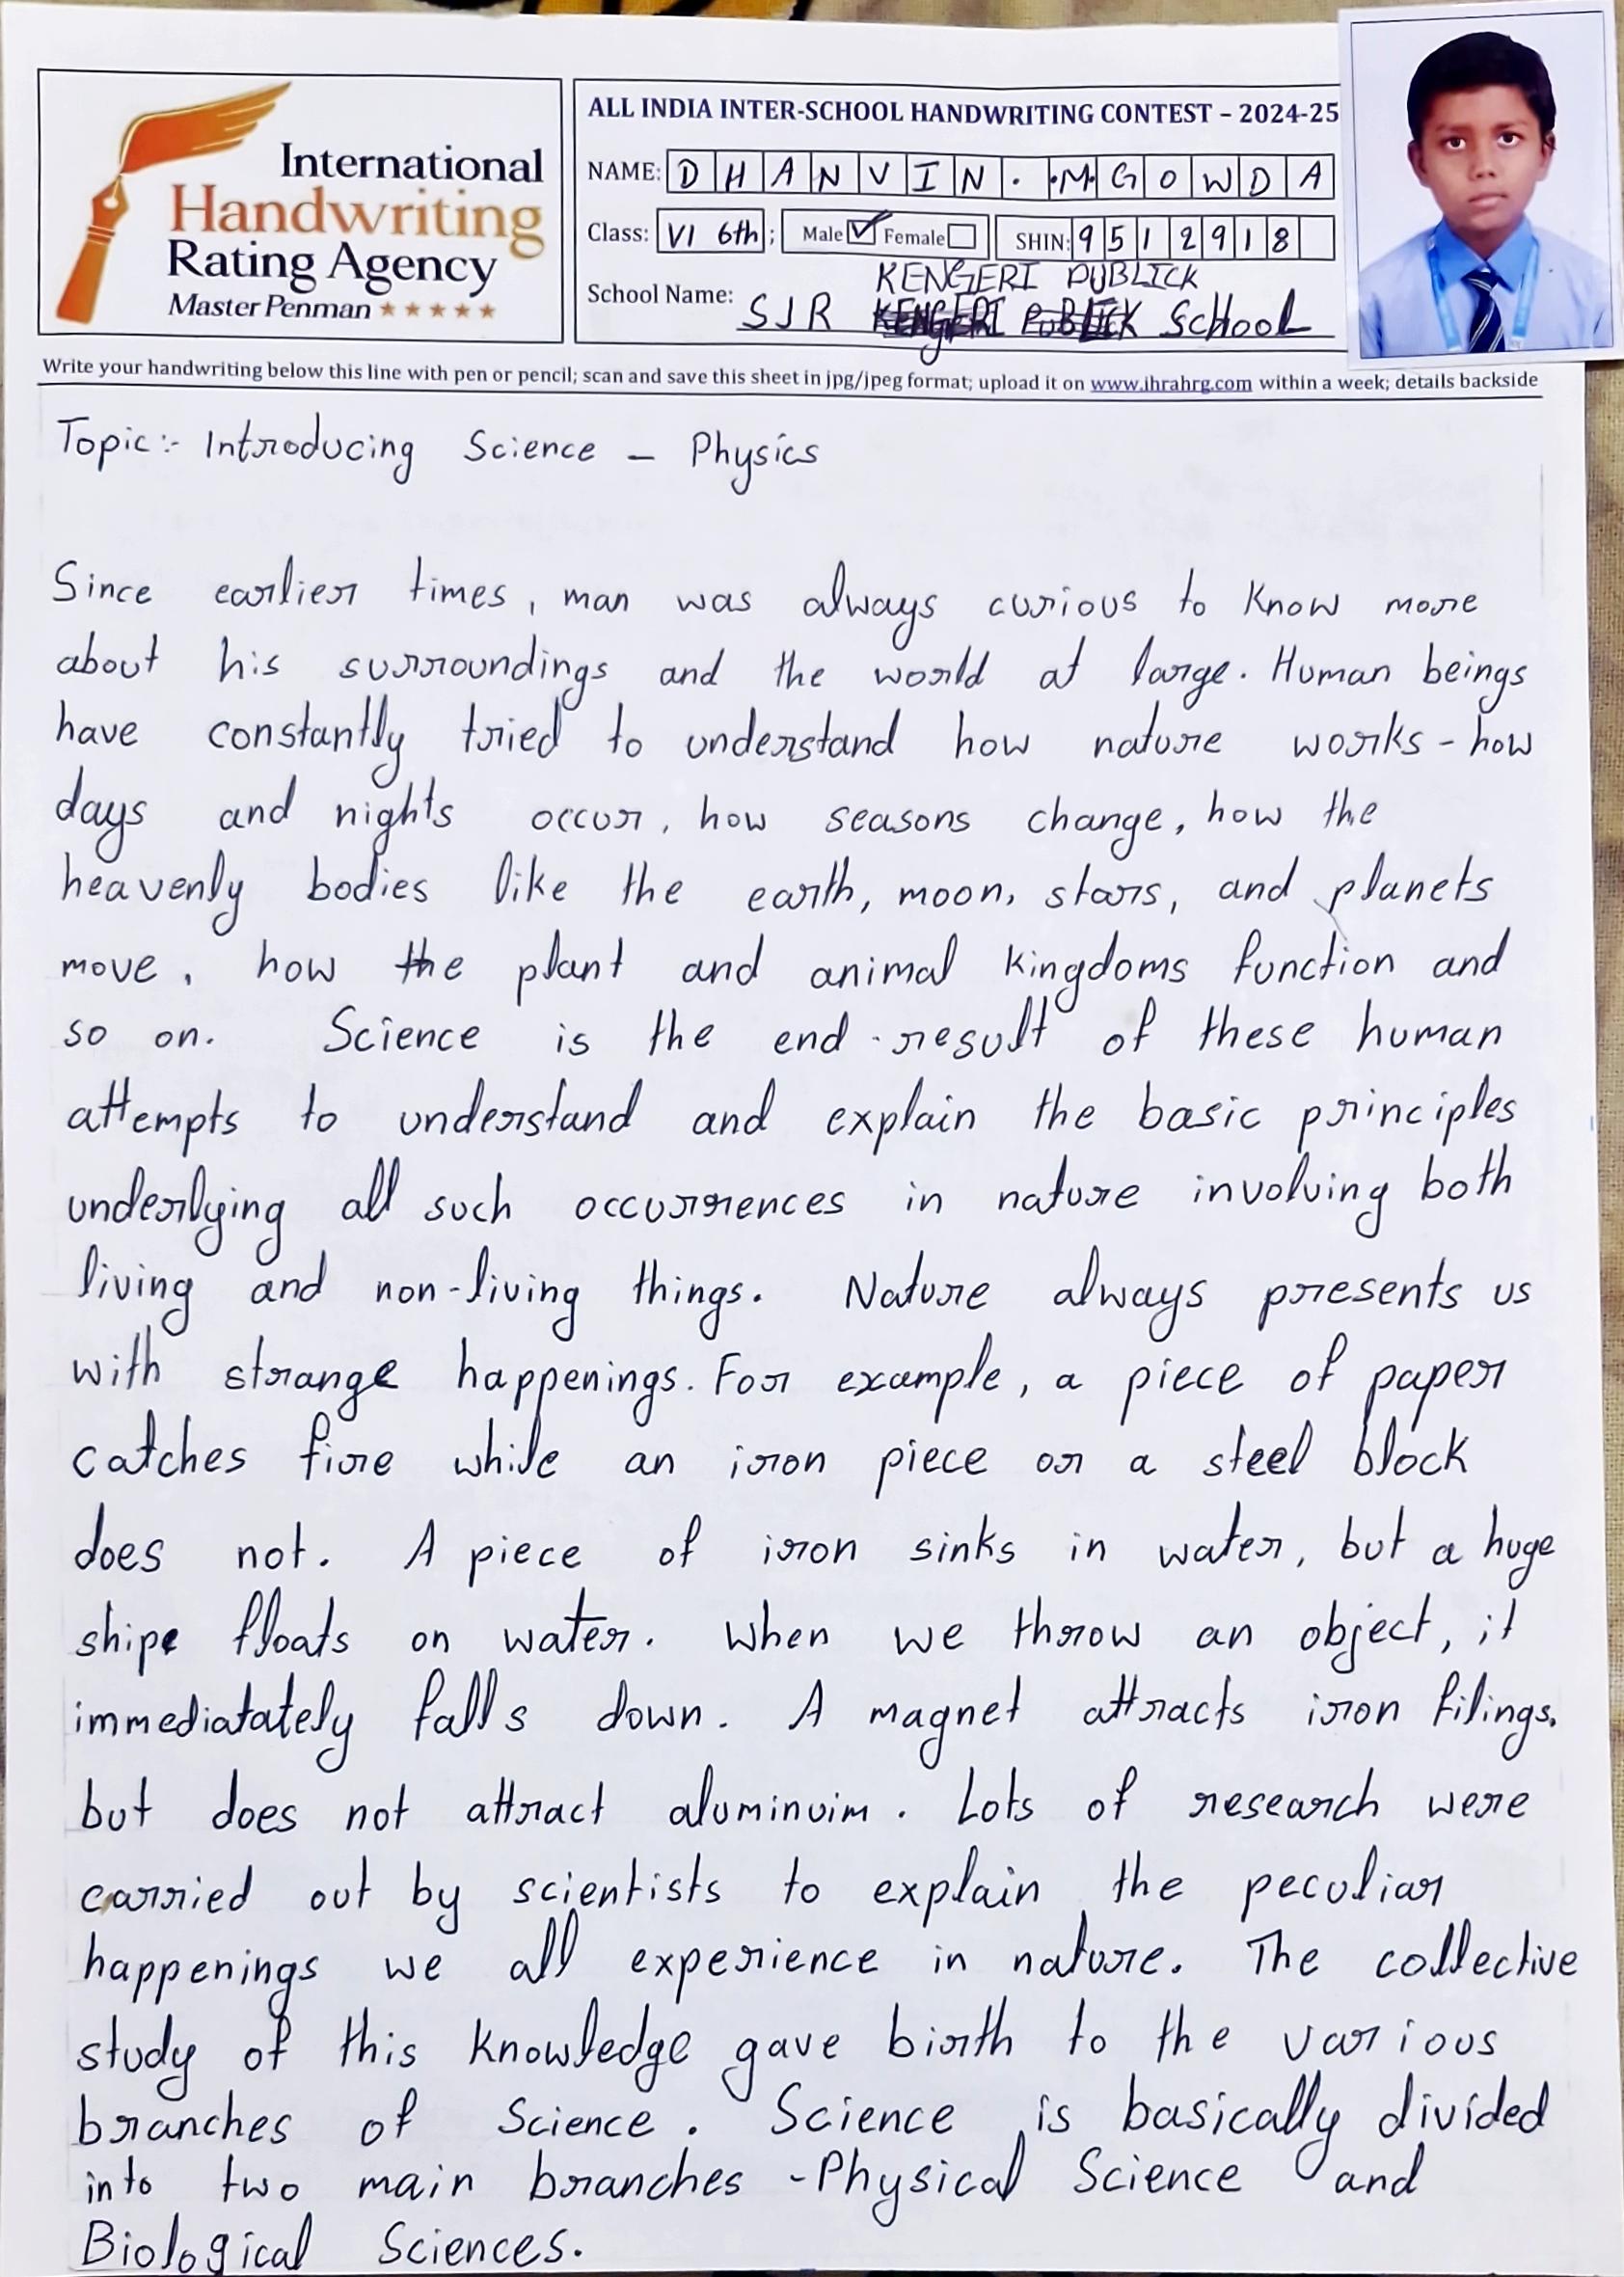 International
Handwriting
Rating Agency
Master Penman ★★★★★
ALL INDIA INTER-SCHOOL HANDWRITING CONTEST – 2024-25
NAME: DHANVIN. .M. GOWDA
Class: VI 6th; Male ☑ Female ☐ SHIN: 9512918
KENGERI PUBLICK
School Name: SJR KENGERI PUBLICK School
Write your handwriting below this line with pen or pencil; scan and save this sheet in jpg/jpeg format; upload it on www.ihrahrg.com within a week; details backside
Topic:- Introducing Science – Physics
Since earlier times, man was always curious to know more
about his surroundings and the world at large. Human beings
have constantly tried to understand how nature works - how
days and nights occur, how seasons change, how the
heavenly bodies like the earth, moon, stars, and planets
move, how the plant and animal kingdoms function and
so on. Science is the end - result of these human
attempts to understand and explain the basic principles
underlying all such occurrences in nature involving both
living and non-living things. Nature always presents us
with strange happenings. For example, a piece of paper
catches fire while an iron piece or a steel block
does not. A piece of iron sinks in water, but a huge
shipe floats on water. When we throw an object, it
immediatately falls down. A magnet attracts iron filings,
but does not attract aluminuim. Lots of research were
carried out by scientists to explain the peculiar
happenings we all experience in nature. The collective
study of this knowledge gave birth to the various
branches of Science. Science is basically divided
into two main branches - Physical Science and
Biological Sciences.